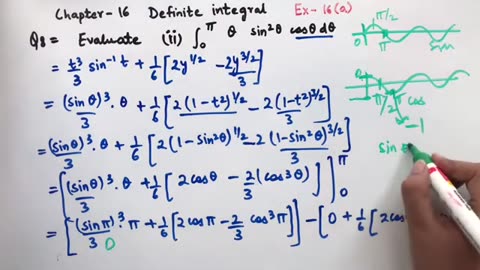 Chapter-16 Definite integral Ex-16(a)
Q8= Evaluate (ii) ∫₀^π θ sin²θ cosθ dθ
= t³/3 sin⁻¹t + 1/6 [2y^1/2 - 2y^3/2/3]
= (sinθ)³/3 . θ + 1/6 [2(1-t²)^1/2/1 - 2(1-t²)^3/2/3]
= (sinθ)³/3 . θ + 1/6 [2(1-sin²θ)^1/2 - 2(1-sin²θ)^3/2/3]
= [(sinθ)³/3 θ + 1/6 [2cosθ - 2/3 (cos3θ)]]₀^π
= [(sinπ)³/3 . π + 1/6 [2cosπ - 2/3 cos³π]] - [0 + 1/6 [2cos
0
π/2
0 π
sin
π
π/2
cos
-1
sin